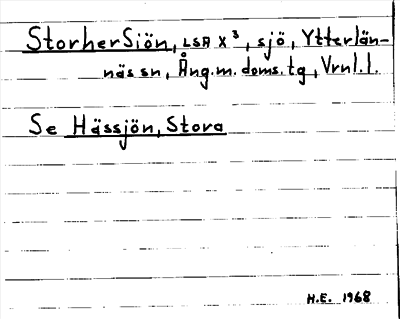 StorherSiön, LSA X 3, sjö, Ytterlän-
näs sn, Ång.m. doms.tg, Vrnl. l.
Se Hässjön, Stora
H.E. 1968